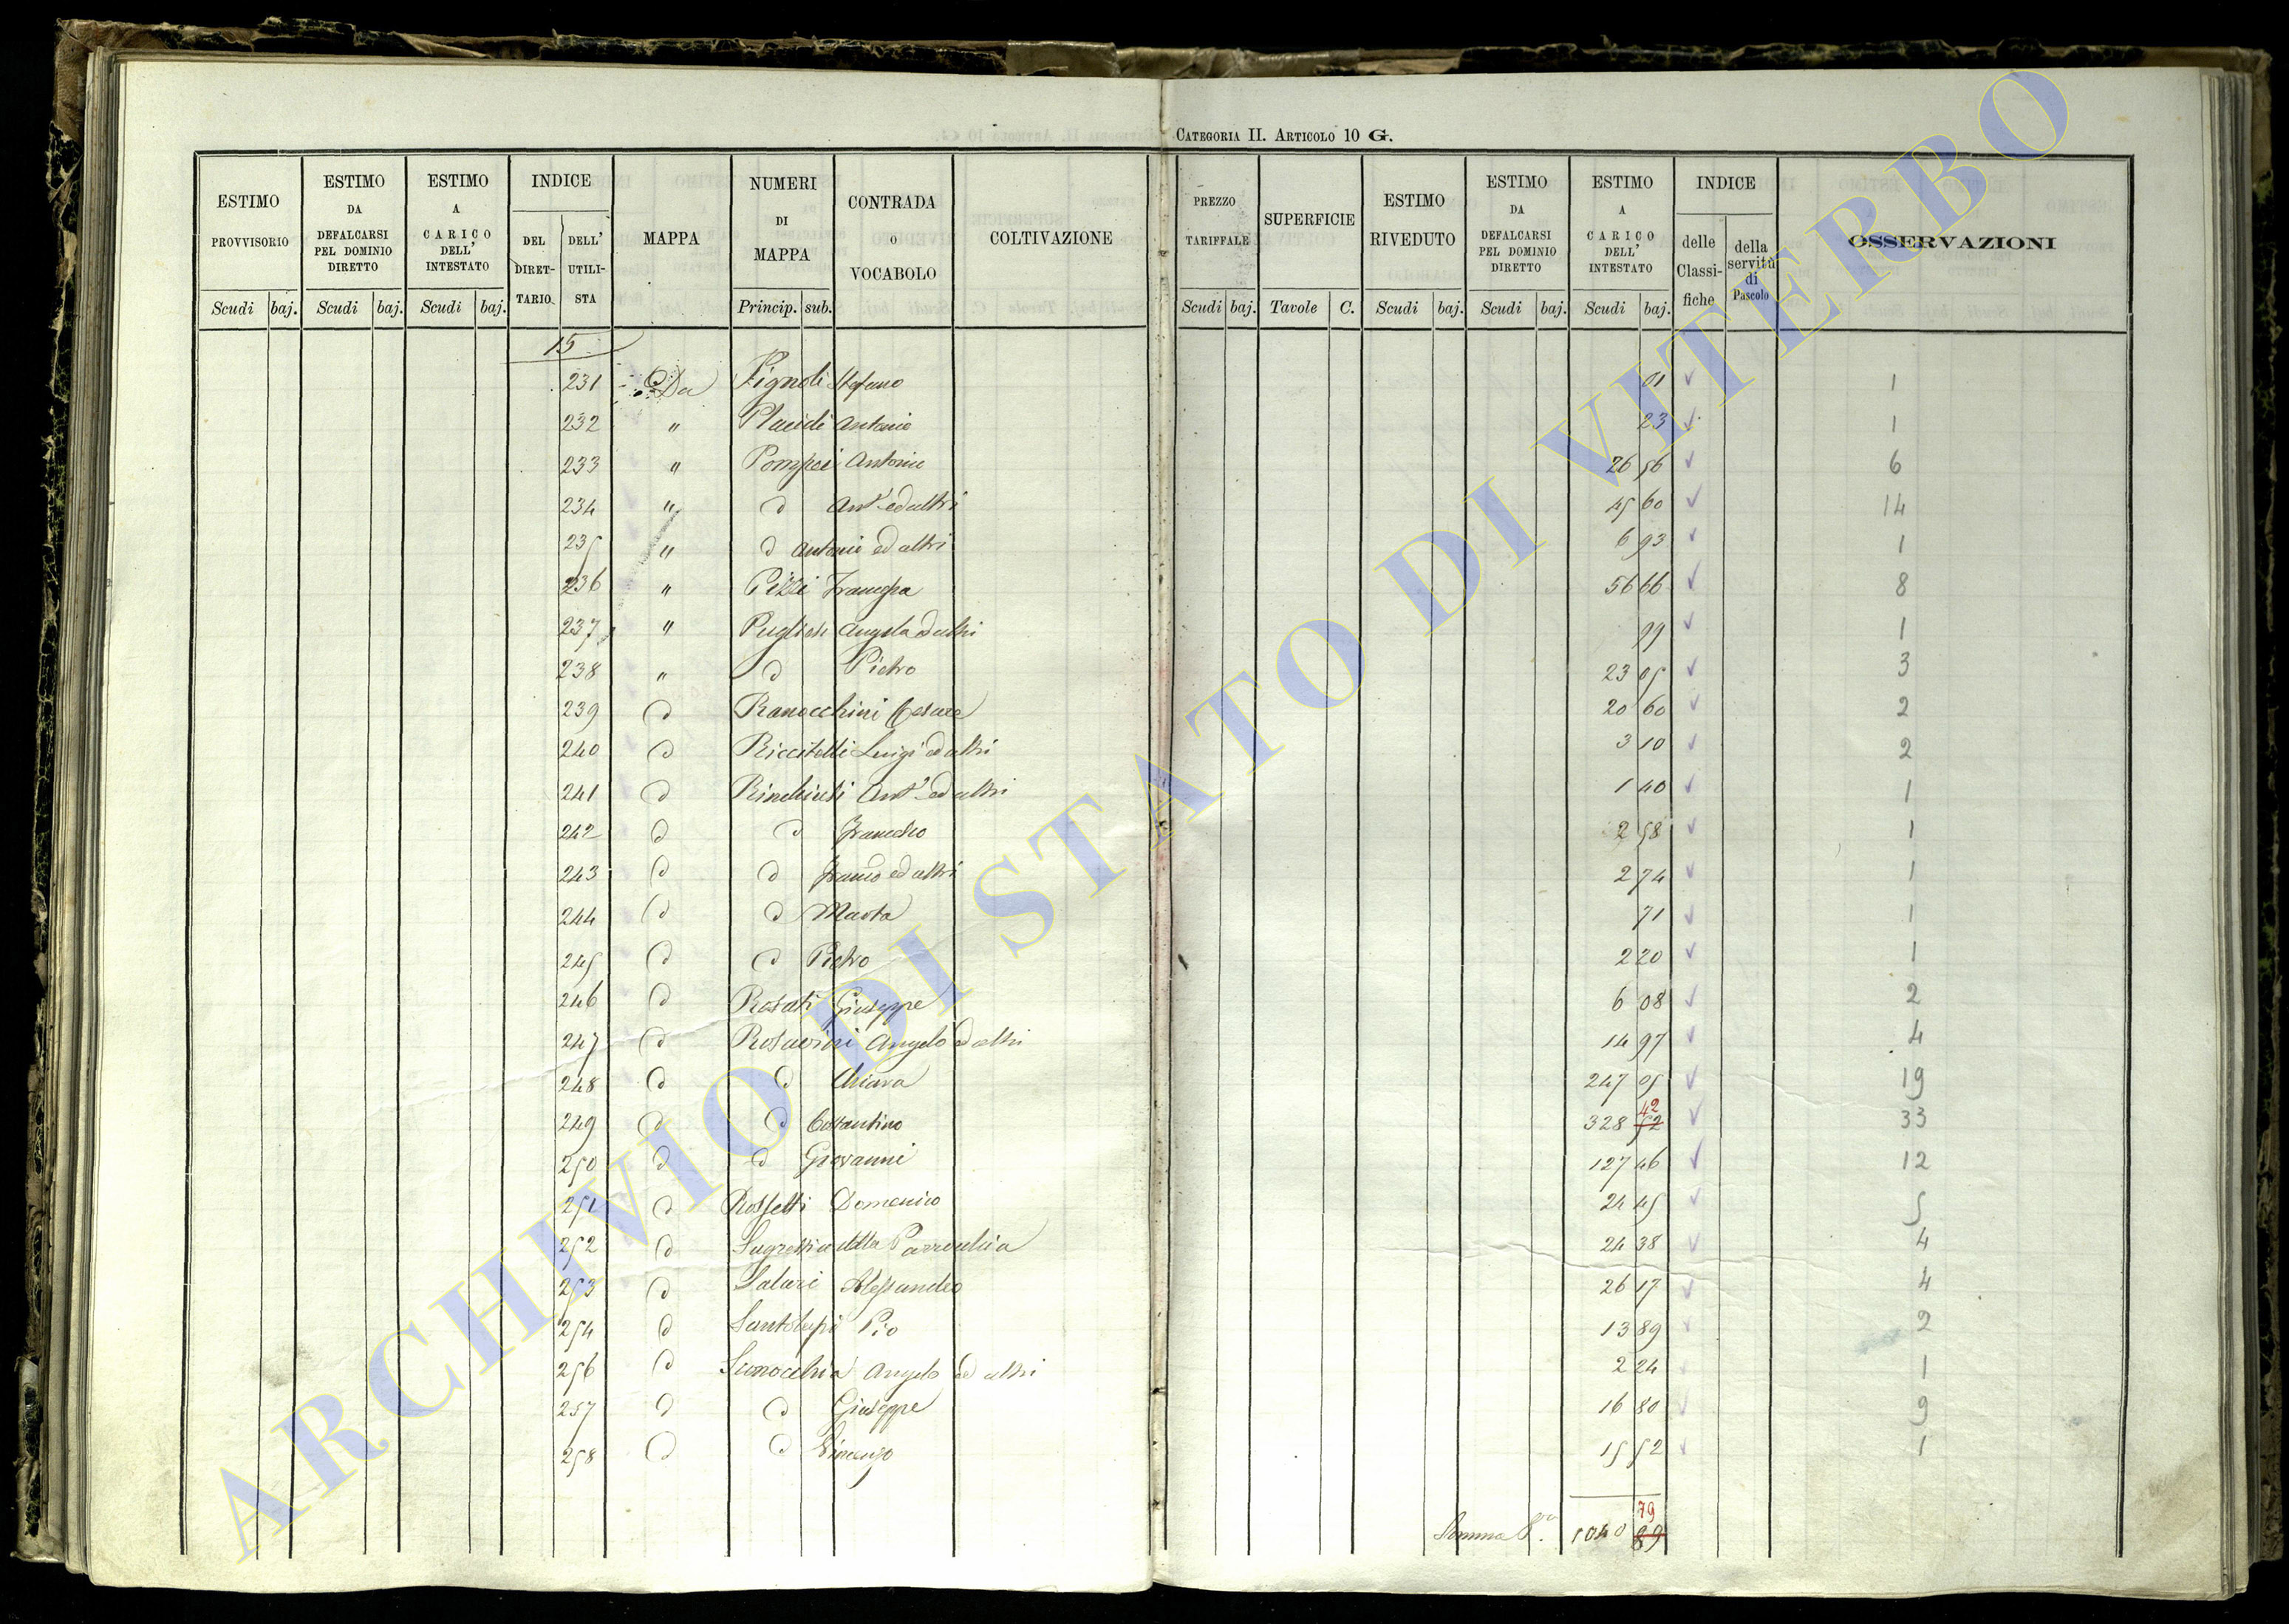 CATEGORIA II. ARTICOLO 10 G.
ESTIMO PROVVISORIO Scudi baj.
ESTIMO DA DEFALCARSI PEL DOMINIO DIRETTO Scudi baj.
ESTIMO A CARICO DELL' INTESTATO Scudi baj.
INDICE DEL DIRETTARIO DELL' UTILISTA
MAPPA
NUMERI DI MAPPA Princip. sub.
CONTRADA O VOCABOLO
COLTIVAZIONE
PREZZO TARIFFALE Scudi baj.
SUPERFICIE Tavole C.
ESTIMO RIVEDUTO Scudi baj.
ESTIMO DA DEFALCARSI PEL DOMINIO DIRETTO Scudi baj.
ESTIMO A CARICO DELL' INTESTATO Scudi baj.
INDICE delle Classifiche della servitù di Pascolo
OSSERVAZIONI
15
231 Da Pignoli Stefano 01 1
232 " Placidi Antonio 23 1
233 " Pompei Antonio 26 56 6
234 " d Ant° ed altri 45 60 14
235 " d Antonio ed altri 6 93 1
236 " Pizzi Francesca 56 66 8
237 " Pugliesi Angela ed altri 99 1
238 " d Pietro 23 05 3
239 d Ranocchini Cesare 20 60 2
240 d Riccitelli Luigi ed altri 3 10 2
241 d Rinchiusi Ant° ed altri 1 40 1
242 d d Francesco 2 58 1
243 d d Franco ed altri 2 74 1
244 d d Marta 71 1
245 d d Pietro 2 20 1
246 d Rosati Giuseppe 6 08 2
247 d Rosavini Angelo ed altri 14 97 4
248 d d Chiara 247 05 19
249 d d Costantino 328 52 42 33
250 d d Giovanni 127 46 12
251 d Rossetti Domenico 24 45 5
252 d Sagrestia della Parrocchia 24 38 4
253 d Salari Alessandro 26 17 4
254 d Santolupi Pio 13 89 2
256 d Scenocchia Angelo ed altri 2 24 1
257 d d Giuseppe 16 80 9
258 d d Vincenzo 15 52 1
Somma 1040 89 79
ARCHIVIO DI STATO DI VITERBO